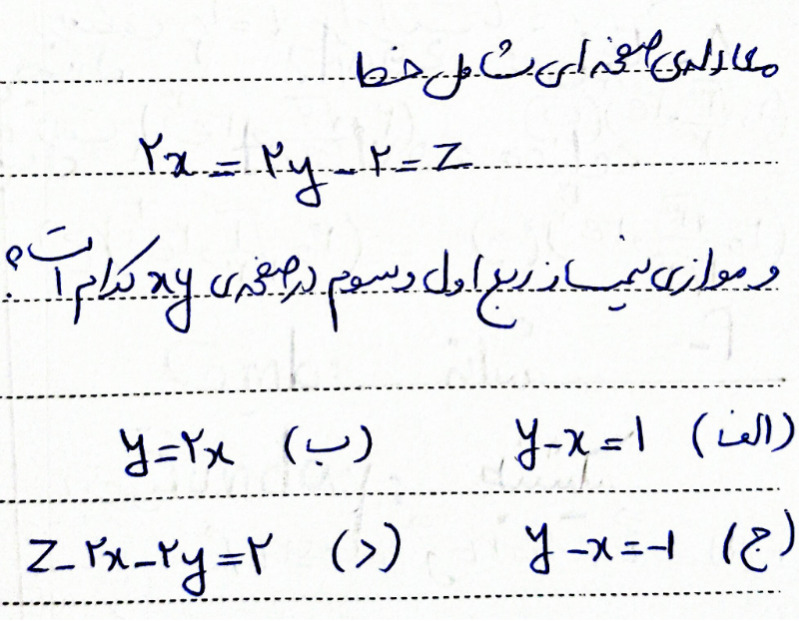 معادله‌ی صفحه‌ای شامل خط
۲x = ۲y - ۲ = z
و موازی نیمساز ربع اول و سوم در صفحه‌ی xy کدام است؟
الف) y - x = 1 ب) y = ۲x
ج) y - x = -1 د) z - ۲x - ۲y = ۲